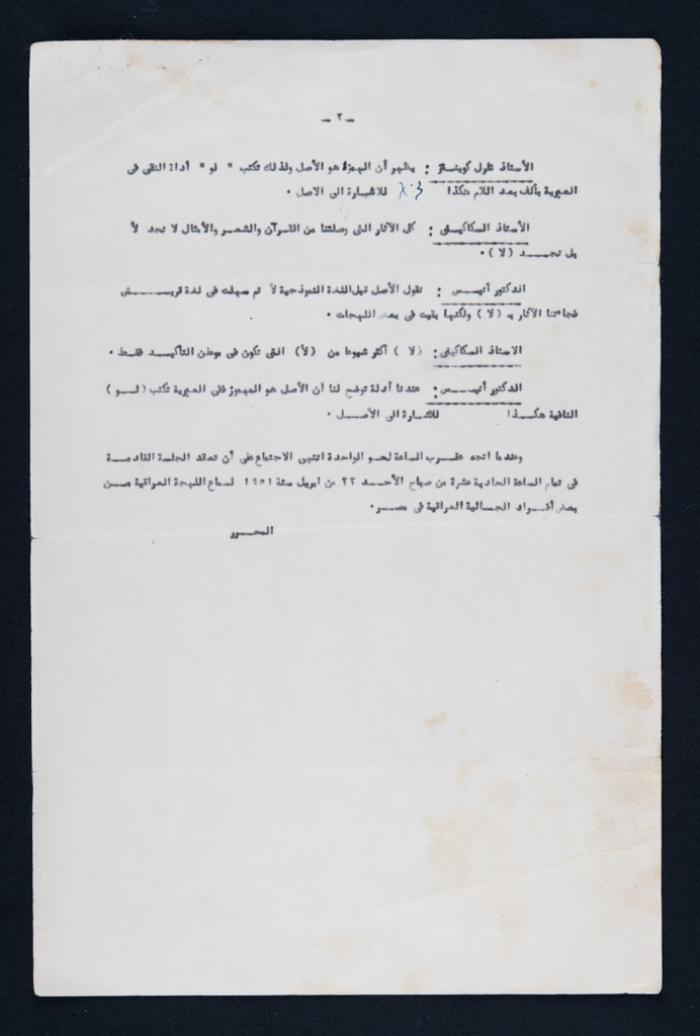 ـ ٢ ـ
الأستاذ شلول كوينتز : يظهر أن الهمزة هو الأصل ولذلك تكتب " لو " أداة النفى فى
العبرية بألف بعد اللام هكذا للاشارة الى الاصل .
الأستاذ السكاكينى : كل الآثار التى وصلتنا من القرآن والشعر والأمثال لا تجد لأ
بل تجــد (لا) .
الدكتور أنيــس : نقول الأصل قبل اللغة النموذجية لأ ثم سهلت فى لغة قريــش
فجاءتنا الآثار بـ (لا) ولكنها بقيت فى بعض اللهجات .
الاستاذ السكاكينى : (لا) أكثر شيوعا من (لأ) التى تكون فى موطن التأكيــد فقــط .
الدكتور أنيــس : عندنا أدلة توضح لنا أن الأصل هو المهموز ففى العبرية تكتب (لــو)
النافية هكــذا للاشــارة الى الأصــل .
وعندما اتجه عقــرب الساعة نحــو الواحدة انتهى الاجتماع على أن تعقد الجلسة القادمــة
فى تمام الساعة الحادية عشرة من صباح الأحــد ٢٢ من ابريل سنة ١٩٥١ لسماع اللهجة العراقية مــن
بعض أفــراد الجــالية العراقية فى مصــر .
المحــرر